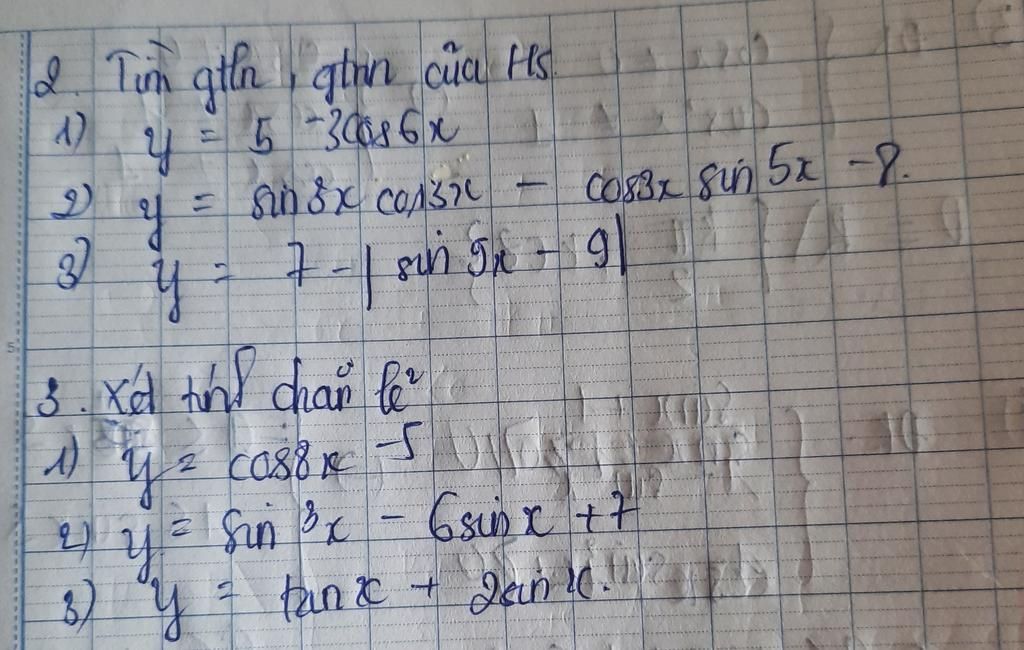 2. Tìm gtln, gtnn của Hs
1) y = 5 - 3cos6x
2) y = sin3x cos3x - cos3x sin5x - 8.
3) y = 7 - | sin 9x - 9|
3. Xét tính chẵn lẻ
1) y = cos8x - 5
2) y = sin 3x - 6sin x + 7
3) y = tan x + 2sin x.